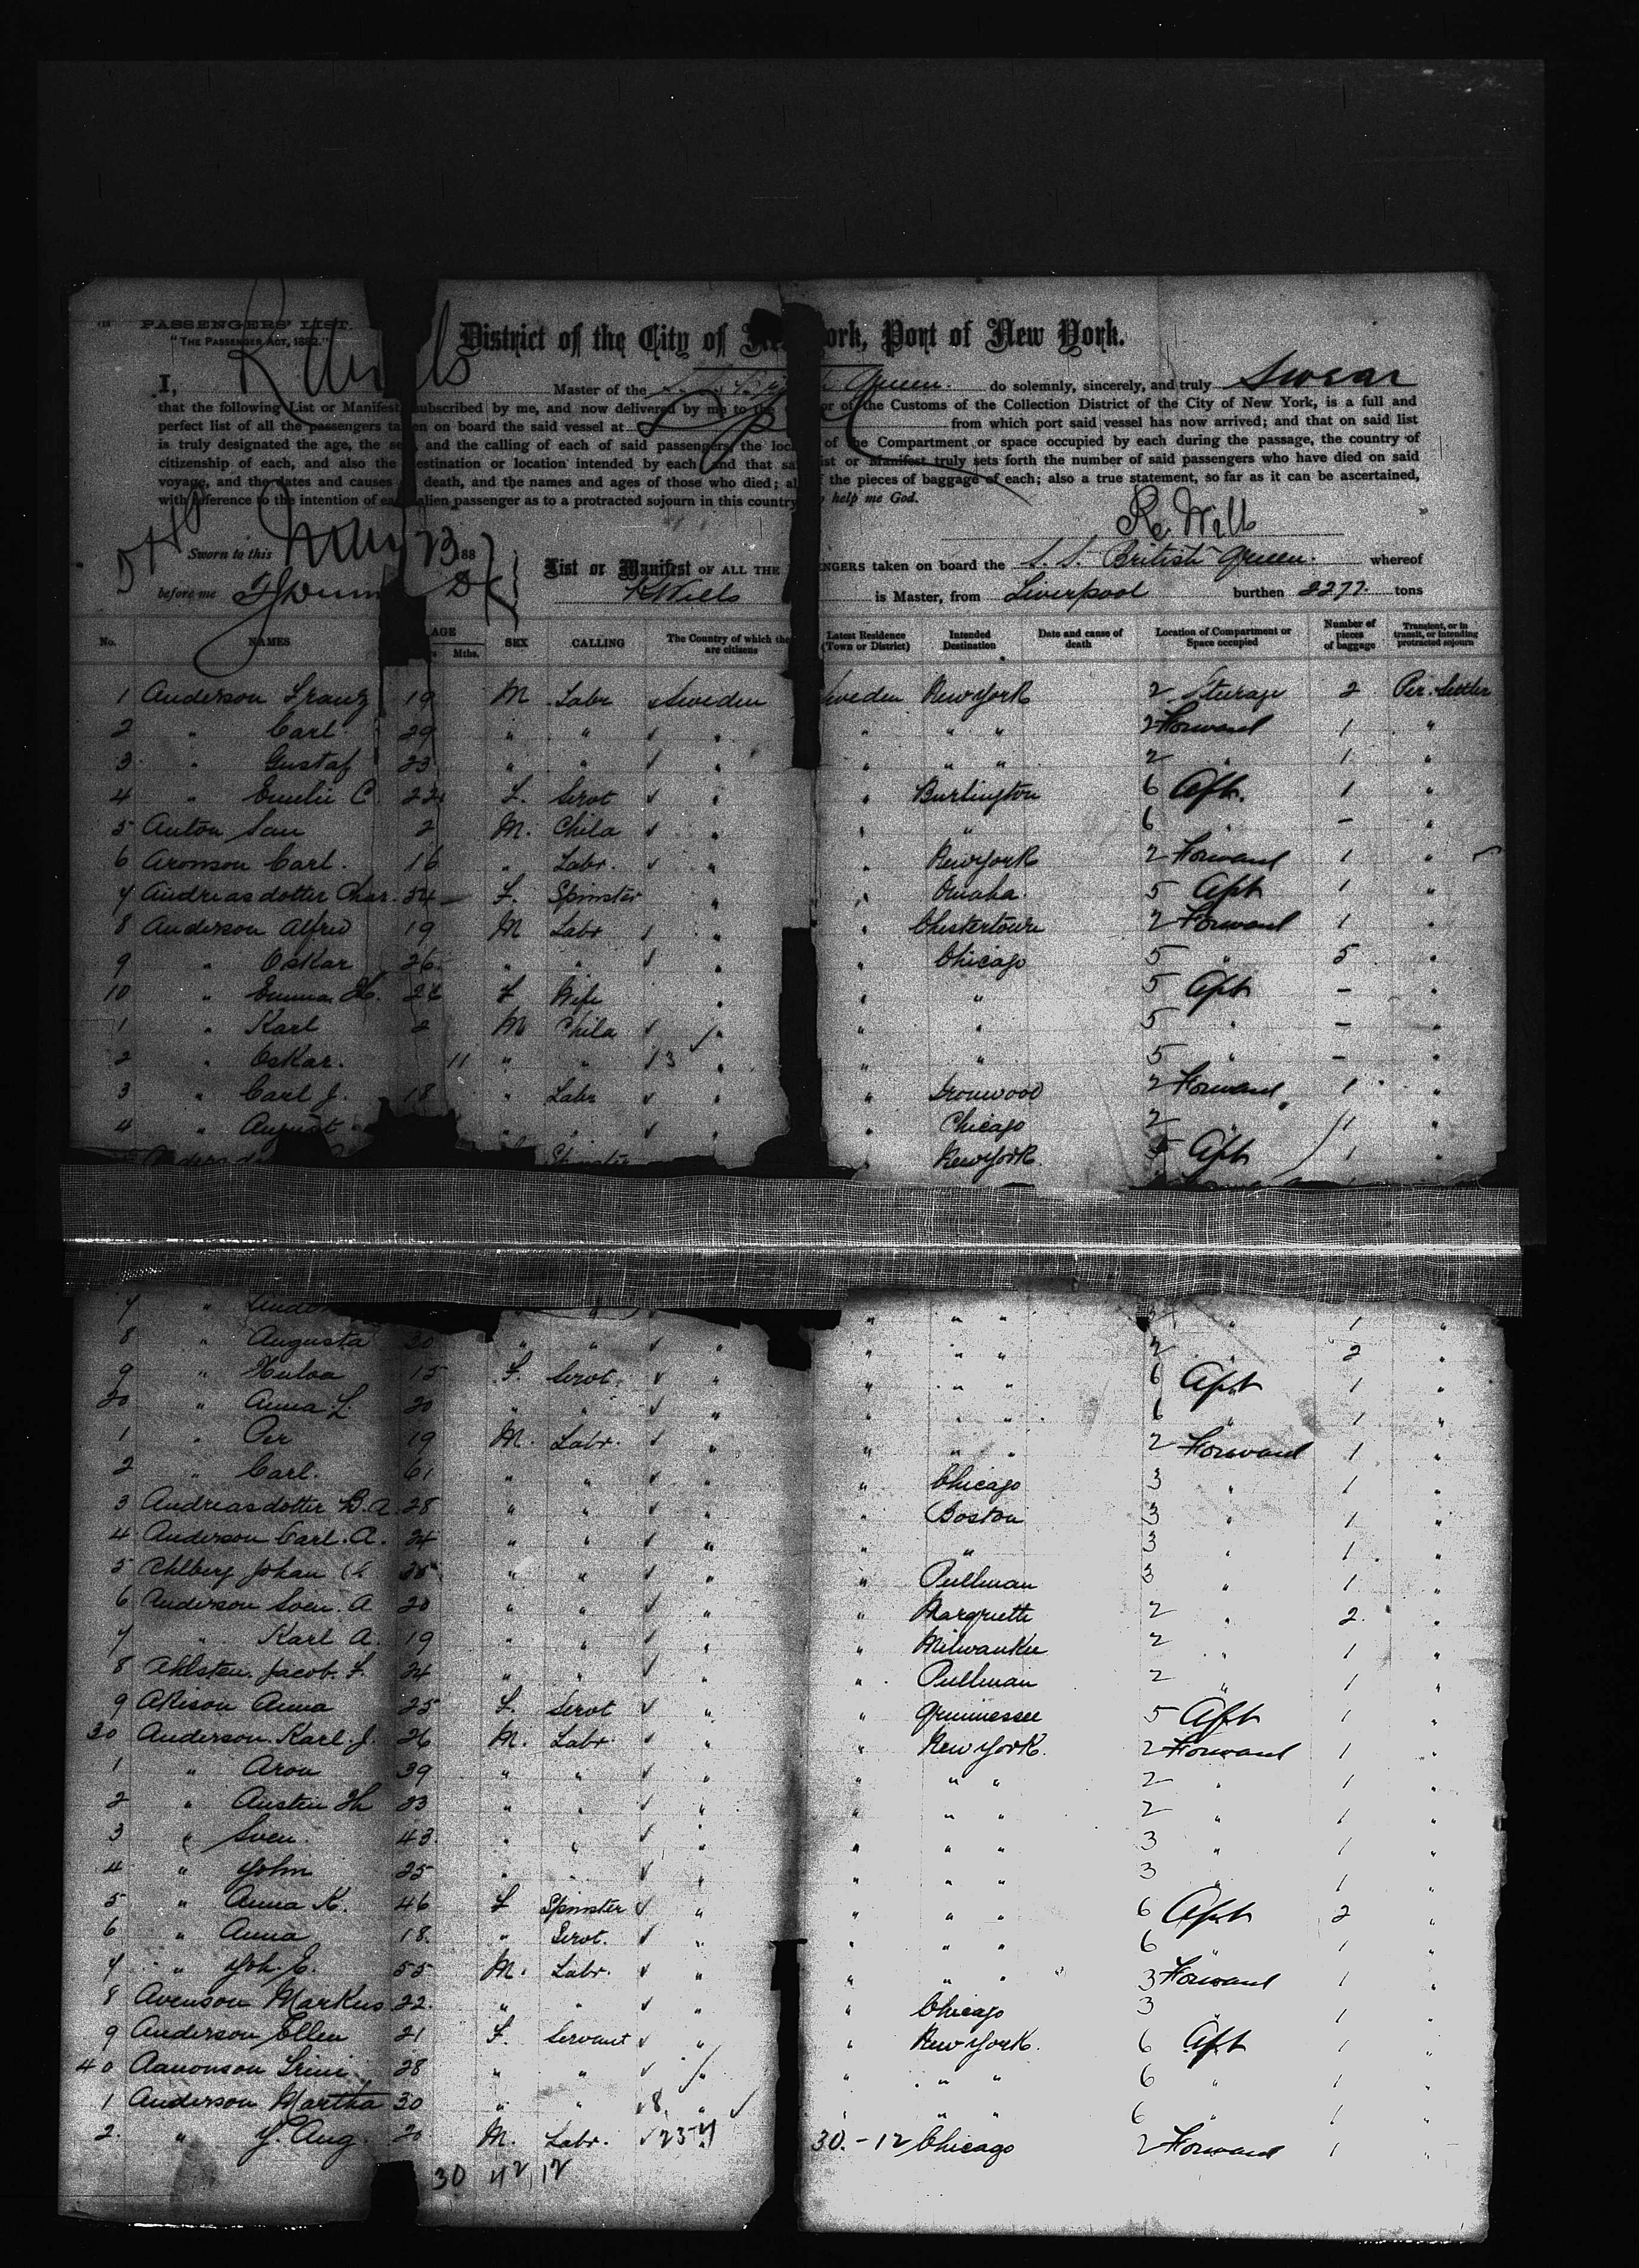 PASSENGERS' LIST.
"THE PASSENGER ACT, 1882."
District of the City of New York, Port of New York.
I, R Wills Master of the S.S. British Queen. do solemnly, sincerely, and truly Swear
that the following List or Manifest subscribed by me, and now delivered by me to the or of the Customs of the Collection District of the City of New York, is a full and
perfect list of all the passengers taken on board the said vessel at from which port said vessel has now arrived; and that on said list
is truly designated the age, the sex and the calling of each of said passengers, the loc of the Compartment or space occupied by each during the passage, the country of
citizenship of each, and also the destination or location intended by each and that sa ist or Manifest truly sets forth the number of said passengers who have died on said
voyage, and the dates and causes death, and the names and ages of those who died; al the pieces of baggage of each; also a true statement, so far as it can be ascertained,
with reference to the intention of each alien passenger as to a protracted sojourn in this country help me God.
R. Wills
Sworn to this May 23 188
List or Manifest OF ALL THE NGERS taken on board the S. S. British Queen. whereof
before me R Wills is Master, from Liverpool burthen 2277 tons
No. NAMES AGE Mths. SEX CALLING The Country of which the are citizens Latest Residence (Town or District) Intended Destination Date and cause of death Location of Compartment or Space occupied Number of pieces of baggage Transient, or in transit, or intending protracted sojourn
1 Anderson Franz 19 M Labr Sweden Sweden New York 2 Steerage 2 Per. Settler
2 " Carl 29 " " " " " " 2 Forward 1 "
3 " Gustaf 23 " " " " " " 2 " 1 "
4 " Emelie C. 22 F. Servt " " Burlington 6 Aft. 1 "
5 Anton 2 M. Child " " " 6 " - "
6 Aronson Carl. 16 " Labr. " " New York 2 Forward 1 "
7 Andreasdotter Char. 54 F. Spinster " " Omaha 5 Aft 1 "
8 Anderson Alfred 19 M Labr " " Chestertown 2 Forward 1 "
9 " Oskar 26 " " " " Chicago 5 " 5 "
10 " Emma 26 F Wife " " " 5 Aft - "
1 " Karl 2 M Child " " " 5 " - "
2 " Oskar. 11 " " 13 " " " 5 " - "
3 " Carl J. 18 " Labr " " Ironwood 2 Forward 1 "
4 " August " " " " Chicago 2 " 1 "
Spinster " New York. 5 Aft 1
7 " " " " " " 1 "
8 " Augusta 30 " " " " " " 2 " 2 "
9 " Hulda 15 F. Servt. " " " " 6 Aft 1 "
20 " Anna L. 20 " " " " " " 6 " 1 "
1 " Per 19 M. Labr. " " " " 2 Forward 1 "
2 " Carl. 61 " " " " Chicago 3 " 1 "
3 Andreasdotter B. A. 28 " " " " Boston 3 " 1 "
4 Anderson Carl. A. 24 " " " " " 3 " 1 "
5 Ehlberg Johan " " " " Pullman 3 " 1 "
6 Anderson Sven. A 20 " " " " Margruette 2 " 2 "
7 " Karl A. 19 " " " " Milwaukee 2 " 1 "
8 Ahlsten. Jacob. F. 24 " " " " Pullman 2 " 1 "
9 Akison Anna 25 F. Servt " " 5 Aft 1 "
30 Anderson. Karl. J. 26 M. Labr. " " New York. 2 Forward 1 "
1 " Aron 39 " " " " " " 2 " 1 "
2 " Austin Th 23 " " " " " " 2 " 1 "
3 " Sven. 43 " " " " " " 3 " 1 "
4 " John 25 " " " " " " 3 " 1 "
5 " Anna K. 46 F Spinster " " " " 6 Aft 2 "
6 " Anna 18. " Servt. " " " " 6 " 1 "
7 " Joh. E. 55 M. Labr. " " " " 3 Forward 1 "
8 Avenson Markus 22. " " " " Chicago 3 " 1 "
9 Anderson Ellen 21 F. Servant " " New York. 6 Aft 1 "
40 Aanonson 28 " " " " " " 6 " 1 "
1 Anderson Martha 30 " " 8 " " " " 6 " 1 "
2. " J. Aug. 20 M. Labr. 23 30.-12 Chicago 2 Forward 1 "
30 42, 12